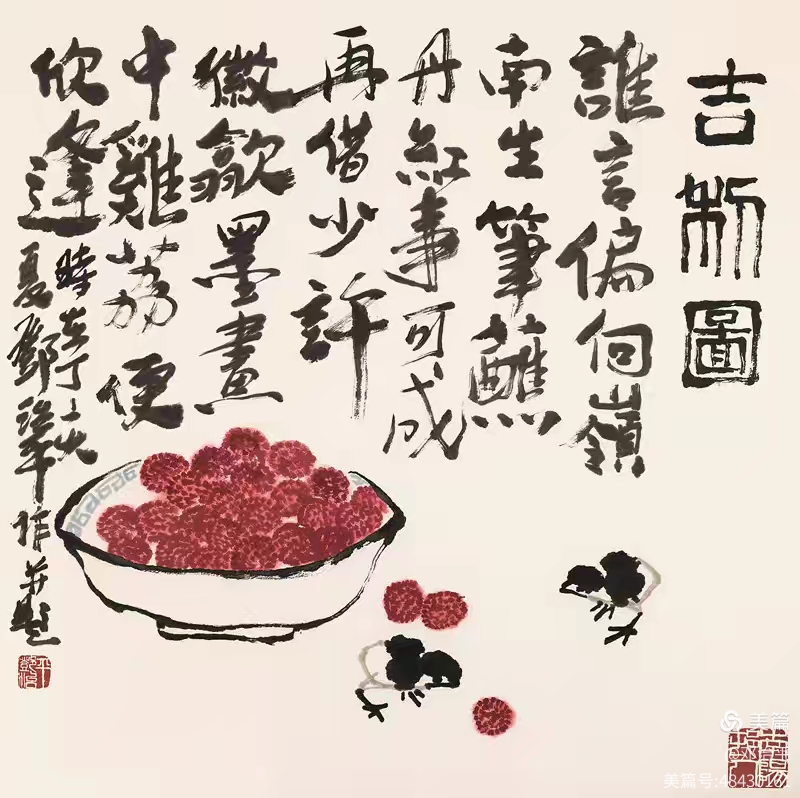 吉利圖
誰言偏向嶺
南生筆蘸
丹紅事可成
再借少許
徽歙墨畫
中雞荔便
欣逢
時在丁亥
夏鄧治平作并題
美篇
美篇号: